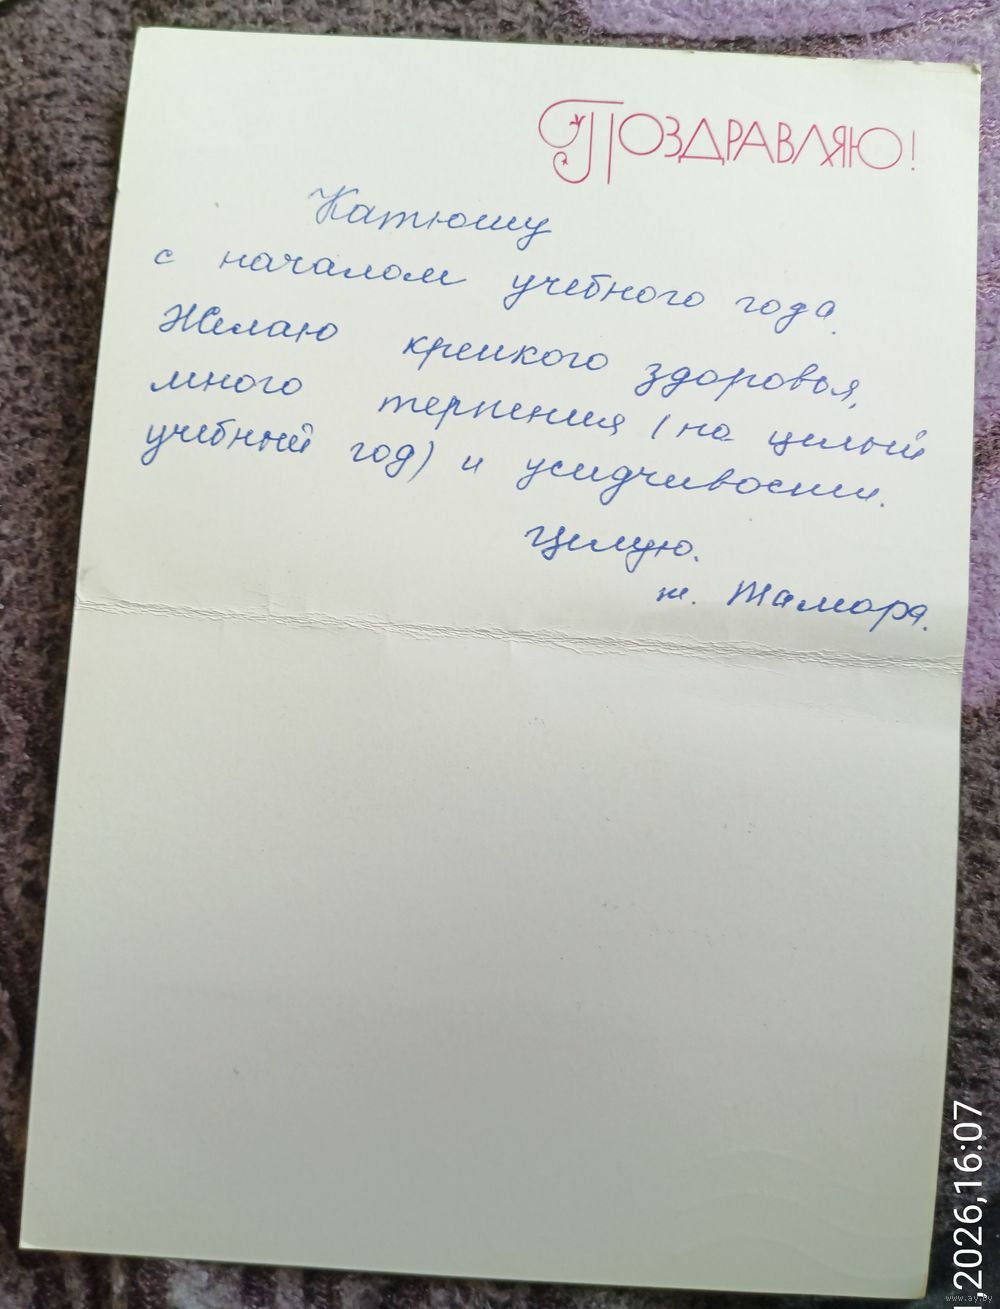 ПОЗДРАВЛЯЮ!
Катюшу
с началом учебного года.
Желаю крепкого здоровья,
много терпения (на целый
учебный год) и усидчивости.
Целую.
т. Тамара.
,2026,16:07
www.ay.by